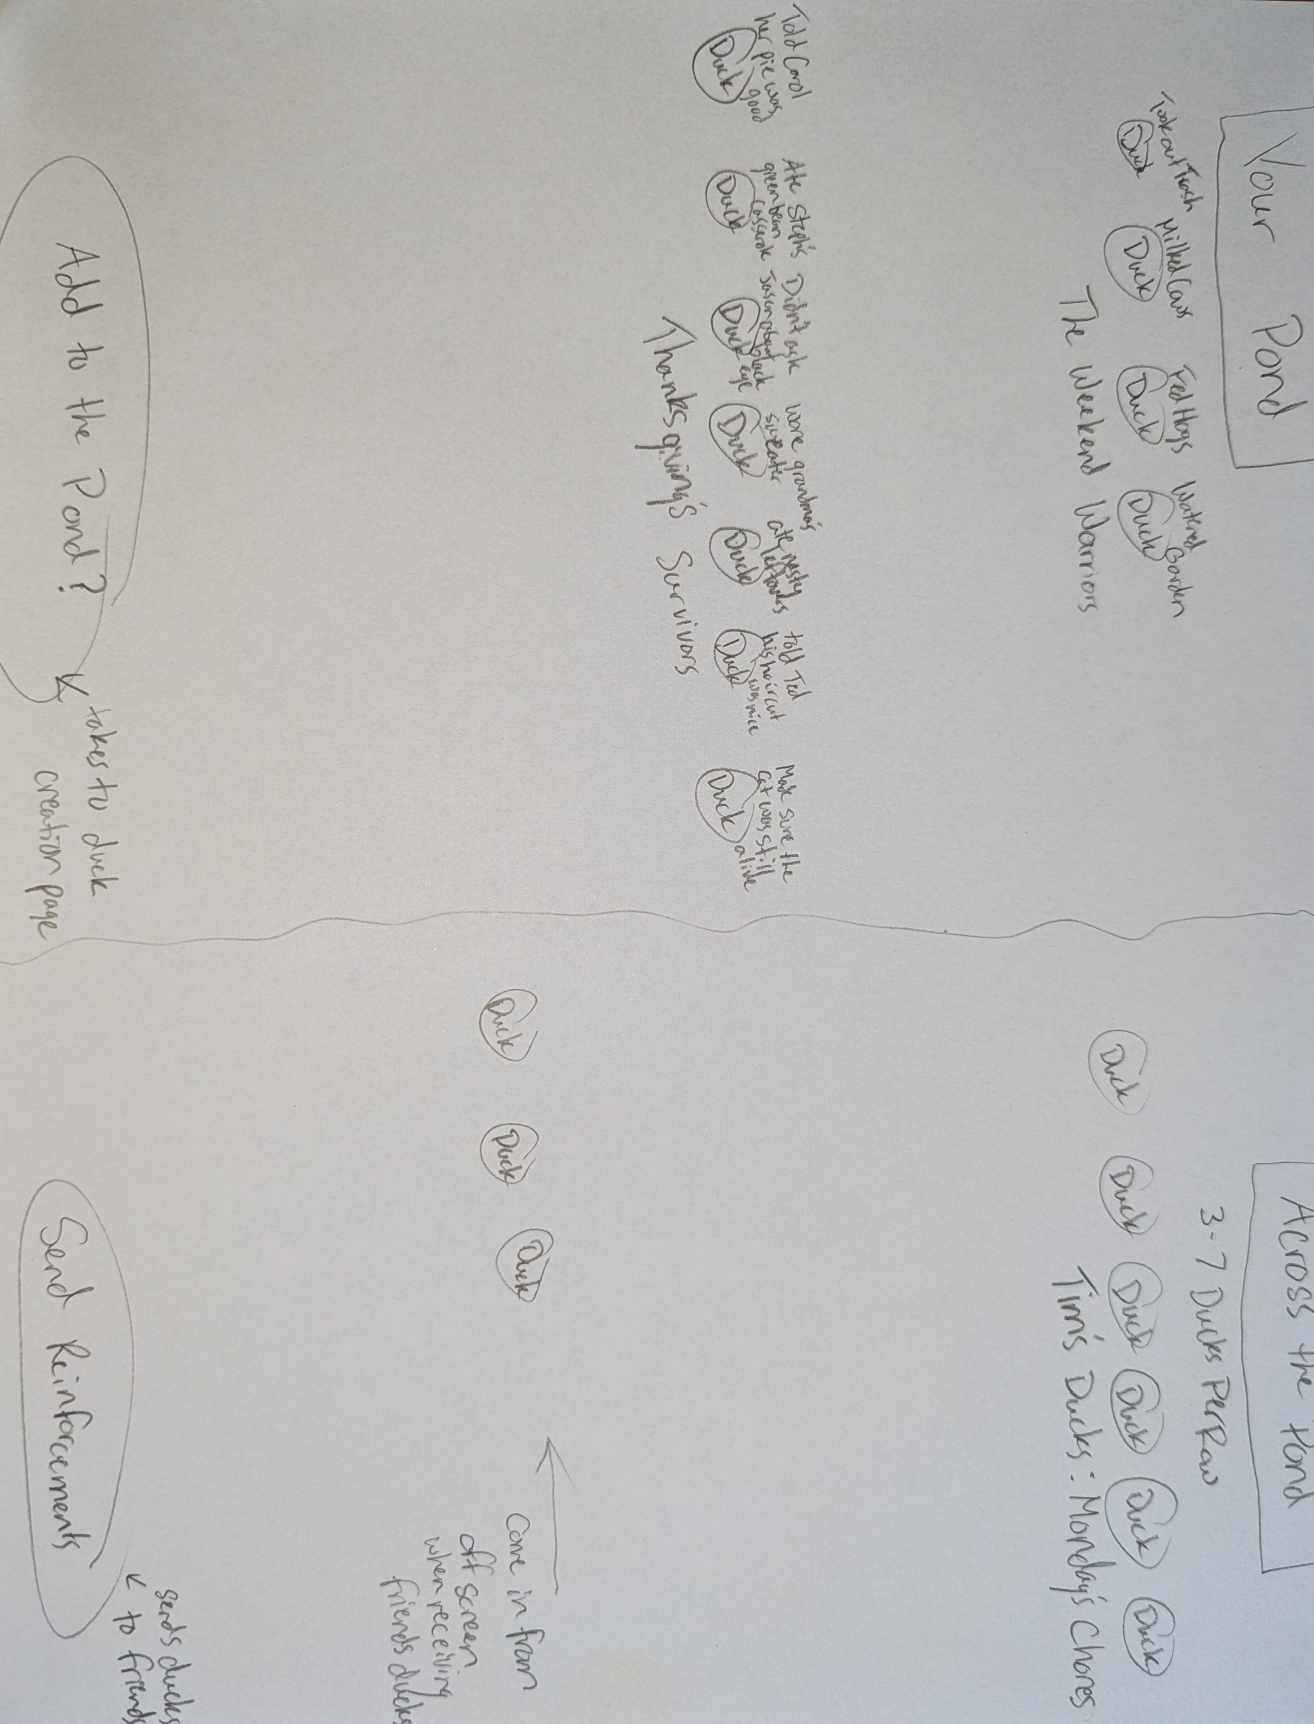 Your Pond
Took out Trash
Duck
Milked Cows
Duck
Fed Hogs
Duck
Watered
Garden
Duck
The Weekend Warriors
Told Carol
her pie was
good
Duck
Ate Steph's
green bean
casserole
Duck
Didn't ask
Jason about
black
eye
Duck
wore grandma's
sweater
Duck
ate nasty
leftovers
Duck
told Ted
his haircut
was nice
Duck
Made sure the
cat was still
alive
Duck
Thanksgiving's Survivors
Add to the Pond?
takes to duck
creation page
Across the Pond
3-7 Ducks Per Row
Duck
Duck
Duck
Duck
Duck
Duck
Tim's Ducks: Monday's Chores
Duck
Duck
Duck
Come in from
off screen
when receiving
friends ducks
Send Reinforcements
sends ducks
to friends